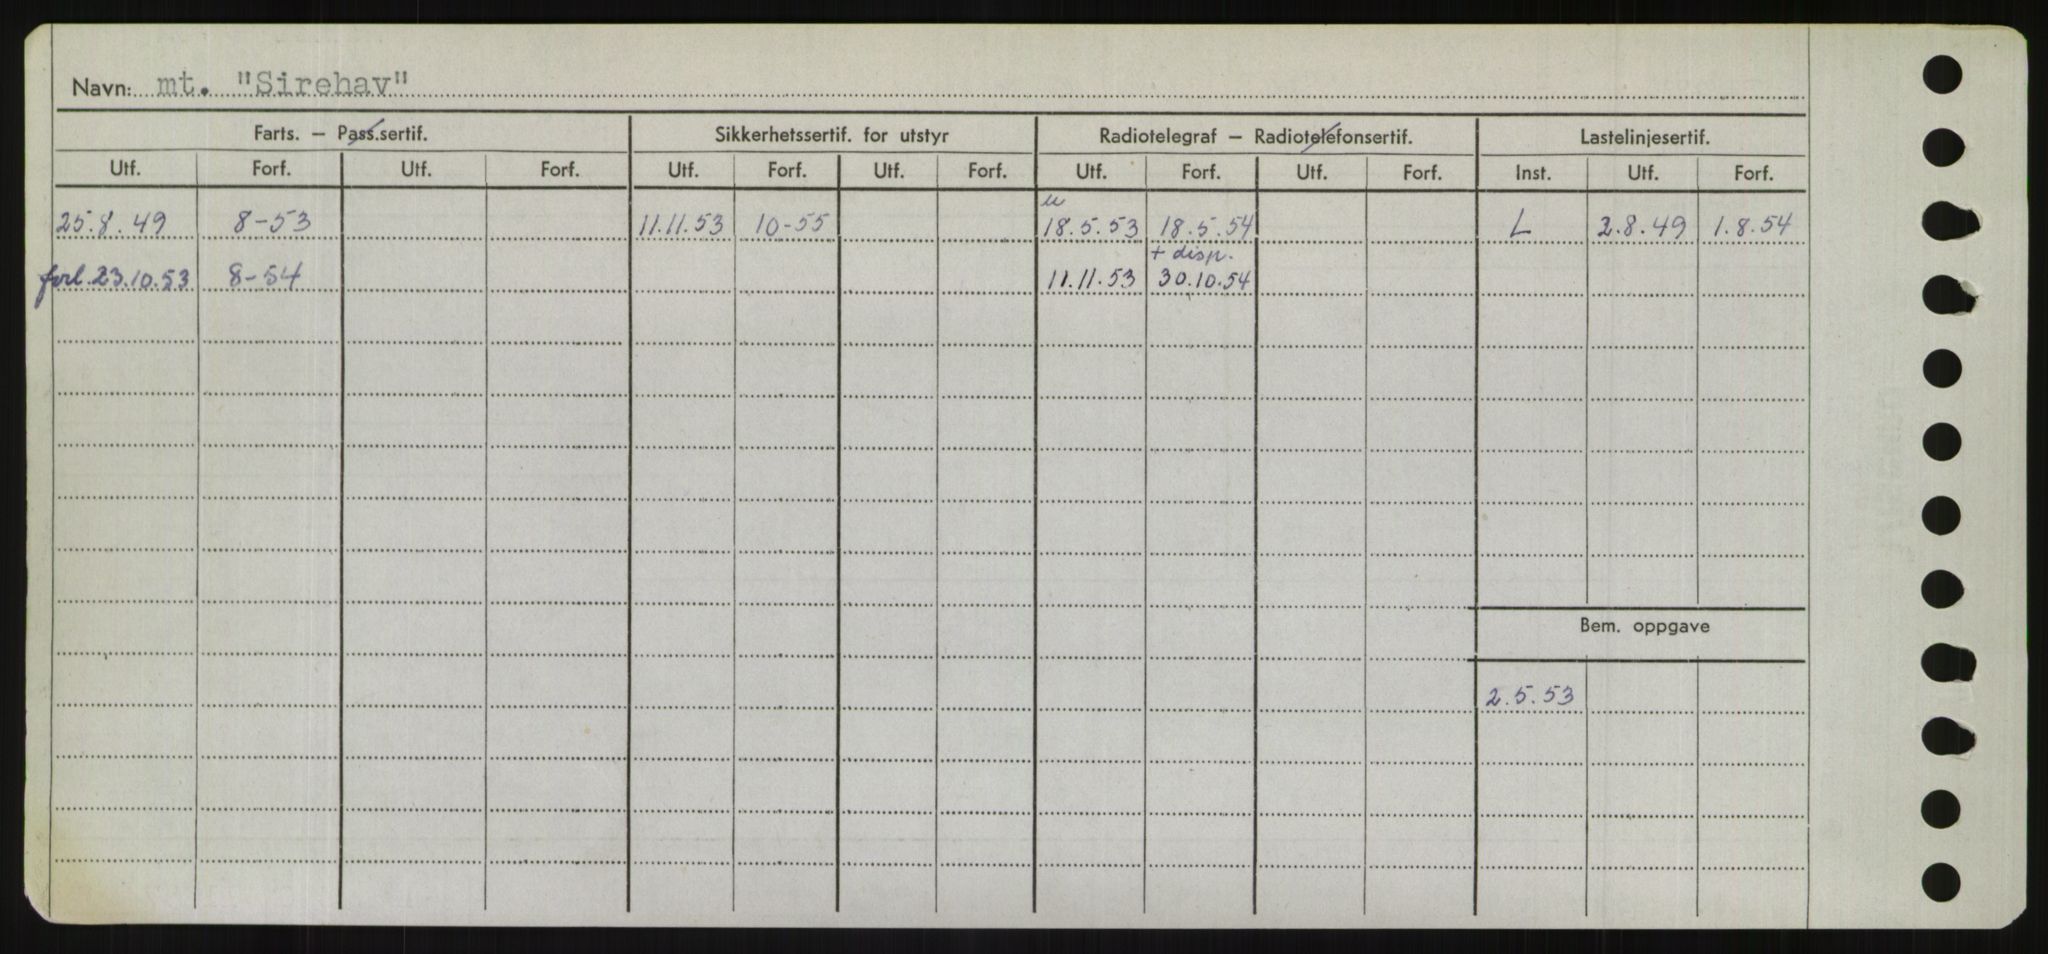 Navn: mt. "Sirehav"
Farts. – Pass.sertif. Sikkerhetssertif. for utstyr Radiotelegraf – Radiotelefonsertif. Lastelinjesertif.
Utf. Forf. Utf. Forf. Utf. Forf. Utf. Forf. Utf. Forf. Utf. Forf. Inst. Utf. Forf.
u
25.8.49 8-53 11.11.53 10-55 18.5.53 18.5.54 L 2.8.49 1.8.54
+ disp.
forl. 23.10.53 8-54 11.11.53 30.10.54
Bem. oppgave
2.5.53